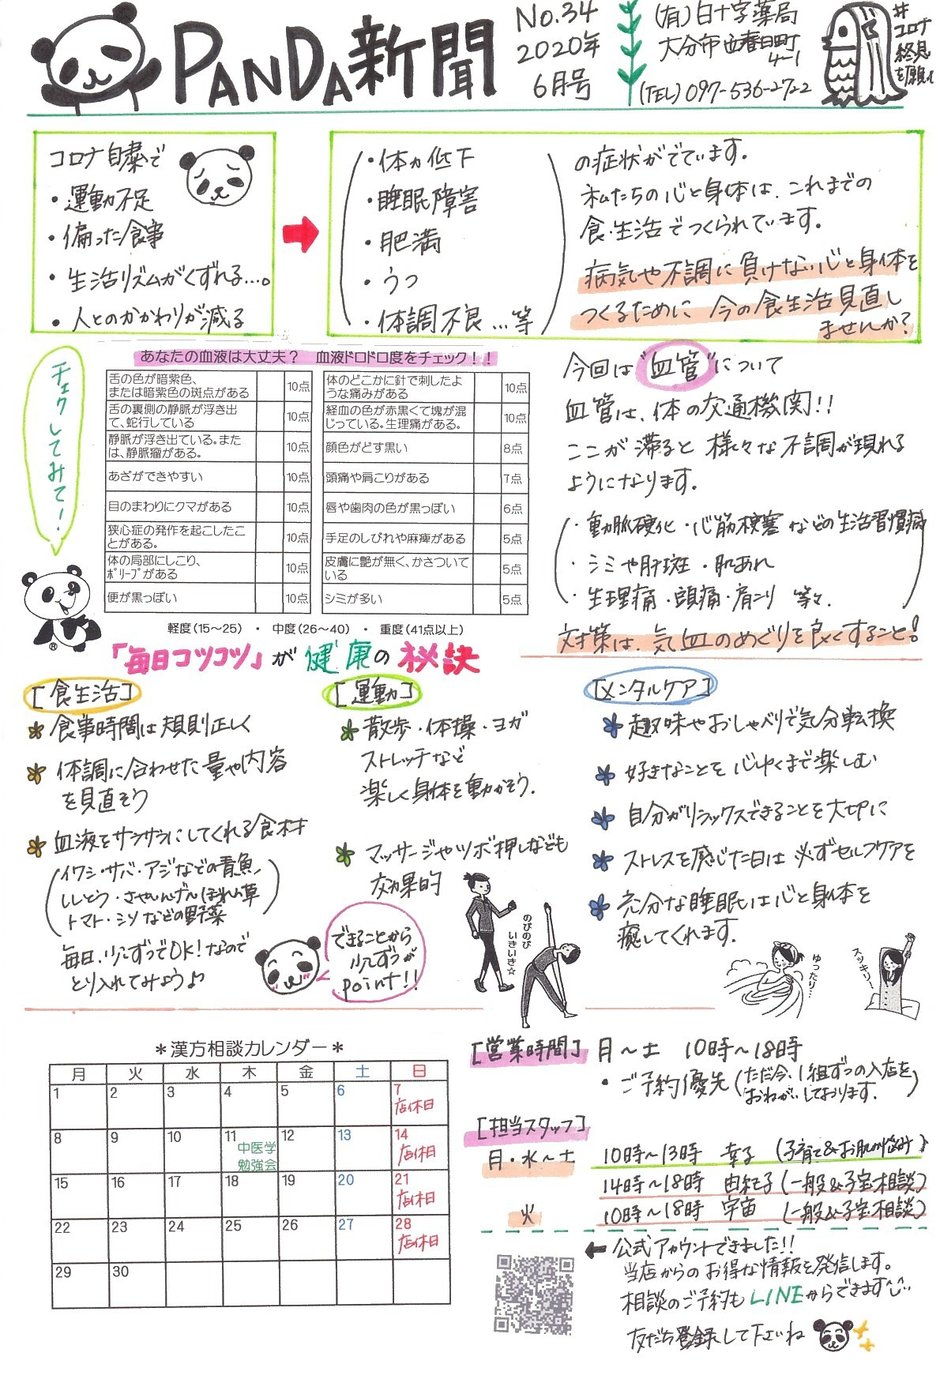 PANDA新聞
No.34
2020年
6月号
(有)白十字薬局
大分市西春日町
4-1
(TEL) 097-536-2722
#コロナ終息を願い
コロナ自粛で
・運動不足
・偏った食事
・生活リズムがくずれる…。
・人とのかかわりが減る
・体力低下
・睡眠障害
・肥満
・うつ
・体調不良…等
の症状がでています。
私たちの心と身体は、これまでの
食・生活でつくられています。
病気や不調に負けない心と身体を
つくるために 今の食生活見直し
ませんか?
チェックしてみて!
あなたの血液は大丈夫? 血液ドロドロ度をチェック!!
舌の色が暗紫色、
または暗紫色の斑点がある 10点
舌の裏側の静脈が浮き出
て、蛇行している 10点
静脈が浮き出ている。また
は、静脈瘤がある。 10点
あざができやすい 10点
目のまわりにクマがある 10点
狭心症の発作を起こしたこ
とがある。 10点
体の局部にしこり、
ポリープがある 10点
便が黒っぽい 10点
体のどこかに針で刺したよ
うな痛みがある 10点
経血の色が赤黒くて塊が混
じっている。生理痛がある。 10点
顔色がどす黒い 8点
頭痛や肩こりがある 7点
唇や歯肉の色が黒っぽい 6点
手足のしびれや麻痺がある 5点
皮膚に艶が無く、かさついて
いる 5点
シミが多い 5点
軽度(15~25) ・ 中度(26~40) ・ 重度(41点以上)
®
今回は"血管"について
血管は、体の交通機関!!
ここが滞ると様々な不調が現れる
ようになります。
・動脈硬化・心筋梗塞などの生活習慣病
・シミや肝斑・肌あれ
・生理痛・頭痛・肩こり 等々
対策は、気血のめぐりを良くすること!
「毎日コツコツ」が健康の秘訣
[食生活]
食事時間は規則正しく
体調に合わせた量や内容
を見直そう
血液をサラサラにしてくれる食材
(イワシ・サバ・アジなどの青魚、
しいたけ・さやいんげん・ほうれん草
トマト・シソなどの野菜)
毎日、少しずつでOK!なので
とり入れてみよう♪
[運動]
散歩・体操・ヨガ
ストレッチなど
楽しく身体を動かそう。
マッサージやツボ押しなども
効果的
できることから
少しずつが
point!!
のびのび
いきいき☆
[メンタルケア]
趣味やおしゃべりで気分転換
好きなことを心ゆくまで楽しむ
自分がリラックスできることを大切に
ストレスを感じた日は必ずセルフケアを
充分な睡眠は心と身体を
癒してくれます。
ゆったり…
スッキリ~
*漢方相談カレンダー*
月 火 水 木 金 土 日
1 2 3 4 5 6 7
店休日
8 9 10 11 12 13 14
中医学
勉強会
店休日
15 16 17 18 19 20 21
店休日
22 23 24 25 26 27 28
店休日
29 30
[営業時間] 月~土 10時~18時
・ご予約優先(ただ今、1組ずつの入店を
おねがいしております。)
[担当スタッフ]
月・水~土 10時~13時 幸子(子育て&お肌の悩み)
14時~18時 由紀子(一般&子宝相談)
火 10時~18時 宇宙(一般&子宝相談)
←公式アカウントできました!!
当店からのお得な情報を発信します。
相談のご予約もLINEからできます
友だち登録して下さいね